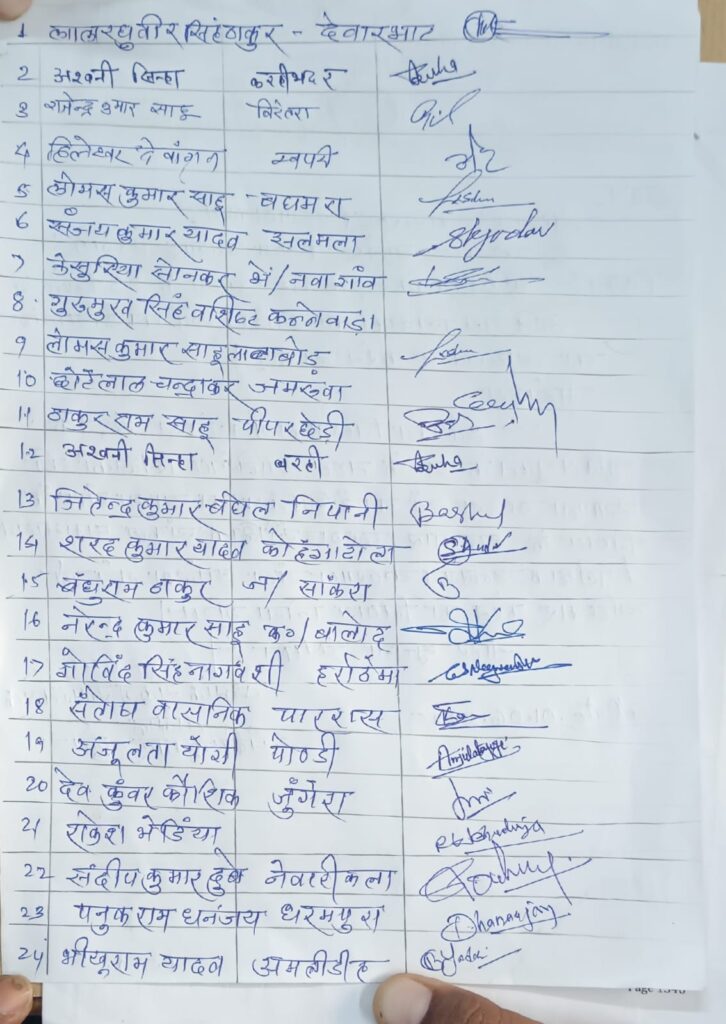 1 लालरघुवीर सिंह ठाकुर - देवारभाट
2 अश्वनी सिन्हा करहीभदर Sinha
3 राजेन्द्र कुमार साहू
4 हिलेश्वर देवांगन
5 लोमस कुमार साहू - बघमरा
6 संजय कुमार यादव झलमला Skyadav
7 सोनकर भे/नवागाँव
8. गुरुमुख सिंह वशिष्ट कन्नेवाड़ा
9 लोमस कुमार साहू लाटाबोड़
10 छोटेलाल चन्द्राकर जमरूवा
11 ठाकुर राम साहू पीपरछेड़ी
12 अश्वनी सिन्हा करही Sinha
13 जितेन्द्र कुमार बघेल निपानी Baghel
14 शरद कुमार यादव कोहंगाटोला
15 बंधुराम ठाकुर ज/ सांकरा B
16 नरेन्द्र कुमार साहू क०/बालोद
17 गोविंद सिंह नागवंशी हर्राठेमा
18 संतोष वासनिक पाररास
19 अंजूलता योगी पोण्डी
20 देव कुंवर कौशिक जुंगेरा
21 राकेश भेड़िया
22 संदीप कुमार दुबे नेवारीकला
23 पनुकराम धनंजय धरमपुरा Dhananjay
24 भीखूराम यादव अमलीडीह BYadav
Page